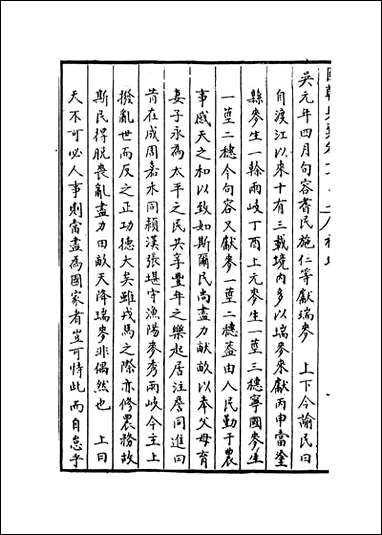 吳元年四月句容耆民施仁等獻瑞麥　上下令諭民曰
自渡江以來十有三載境內多以瑞麥來獻丙申當塗
縣麥生一幹兩岐丁酉上元麥生一莖三穗寧國麥生
一莖二穗今句容又獻麥一莖二穗蓋由人民勤于農
事感天之和以致如斯爾民尚盡力畎畝以奉父母育
妻子永為太平之民共享豐年之樂起居注詹同進曰
昔在成周嘉禾同穎漢張堪守漁陽麥秀兩岐今主上
撥亂世而反之正功德大矣雖戎馬之際亦修農務故
斯民得脫喪亂盡力田畝天降瑞麥非偶然也　上曰
天不可必人事則當盡為國家者豈可恃此而自怠乎